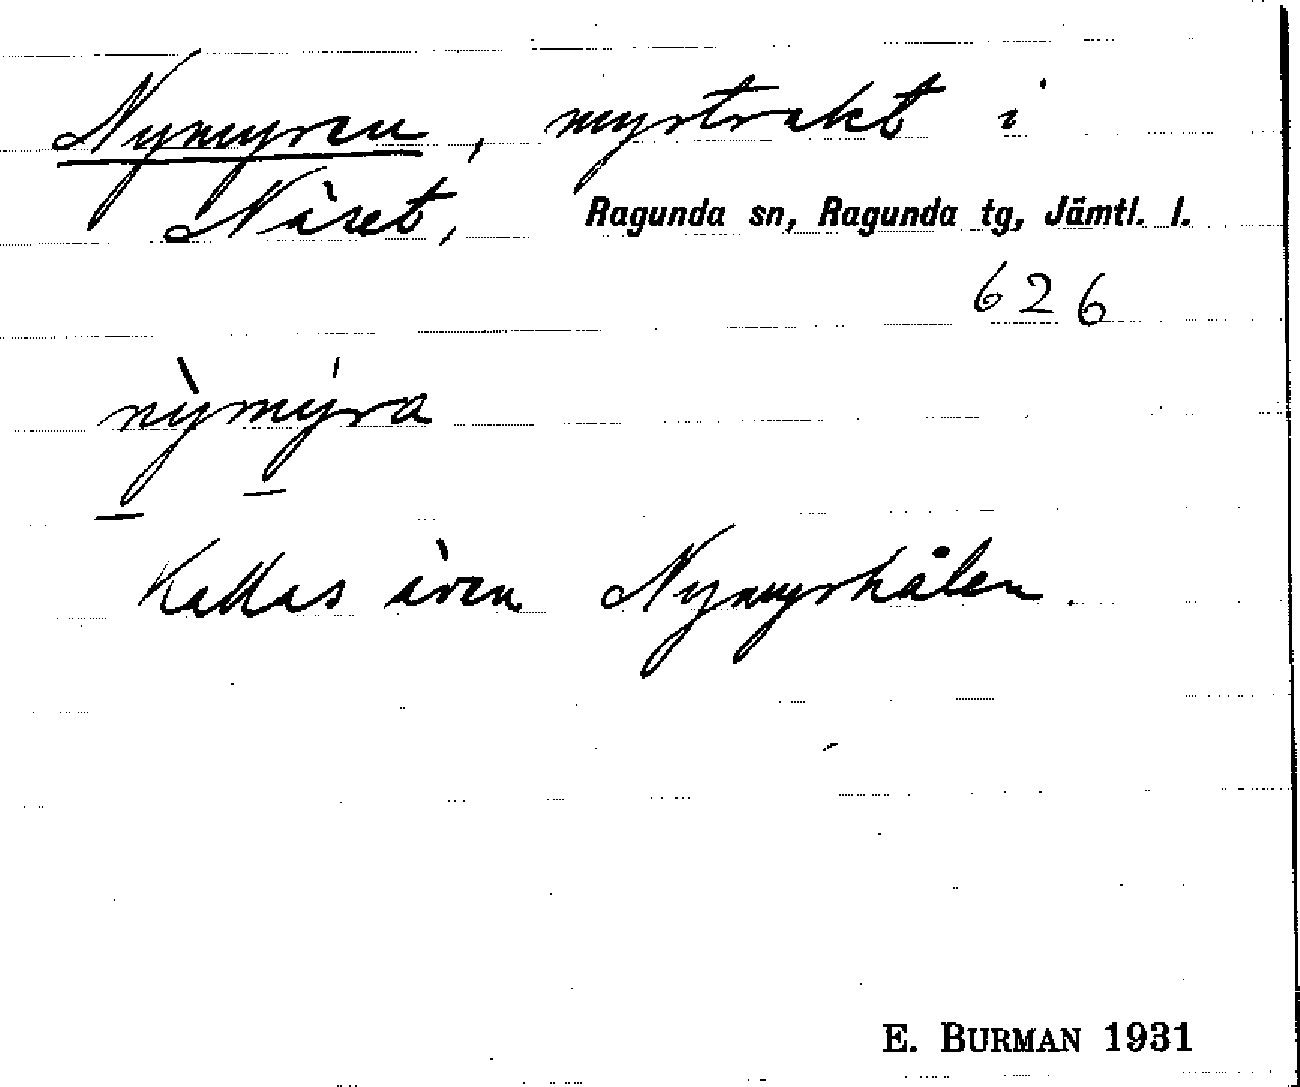 Nymyren, myrtrakt i
Näset, Ragunda sn, Ragunda tg, Jämtl. l.
626
nỳmýra
Kallas även Nymyrhålen.
E. BURMAN 1931